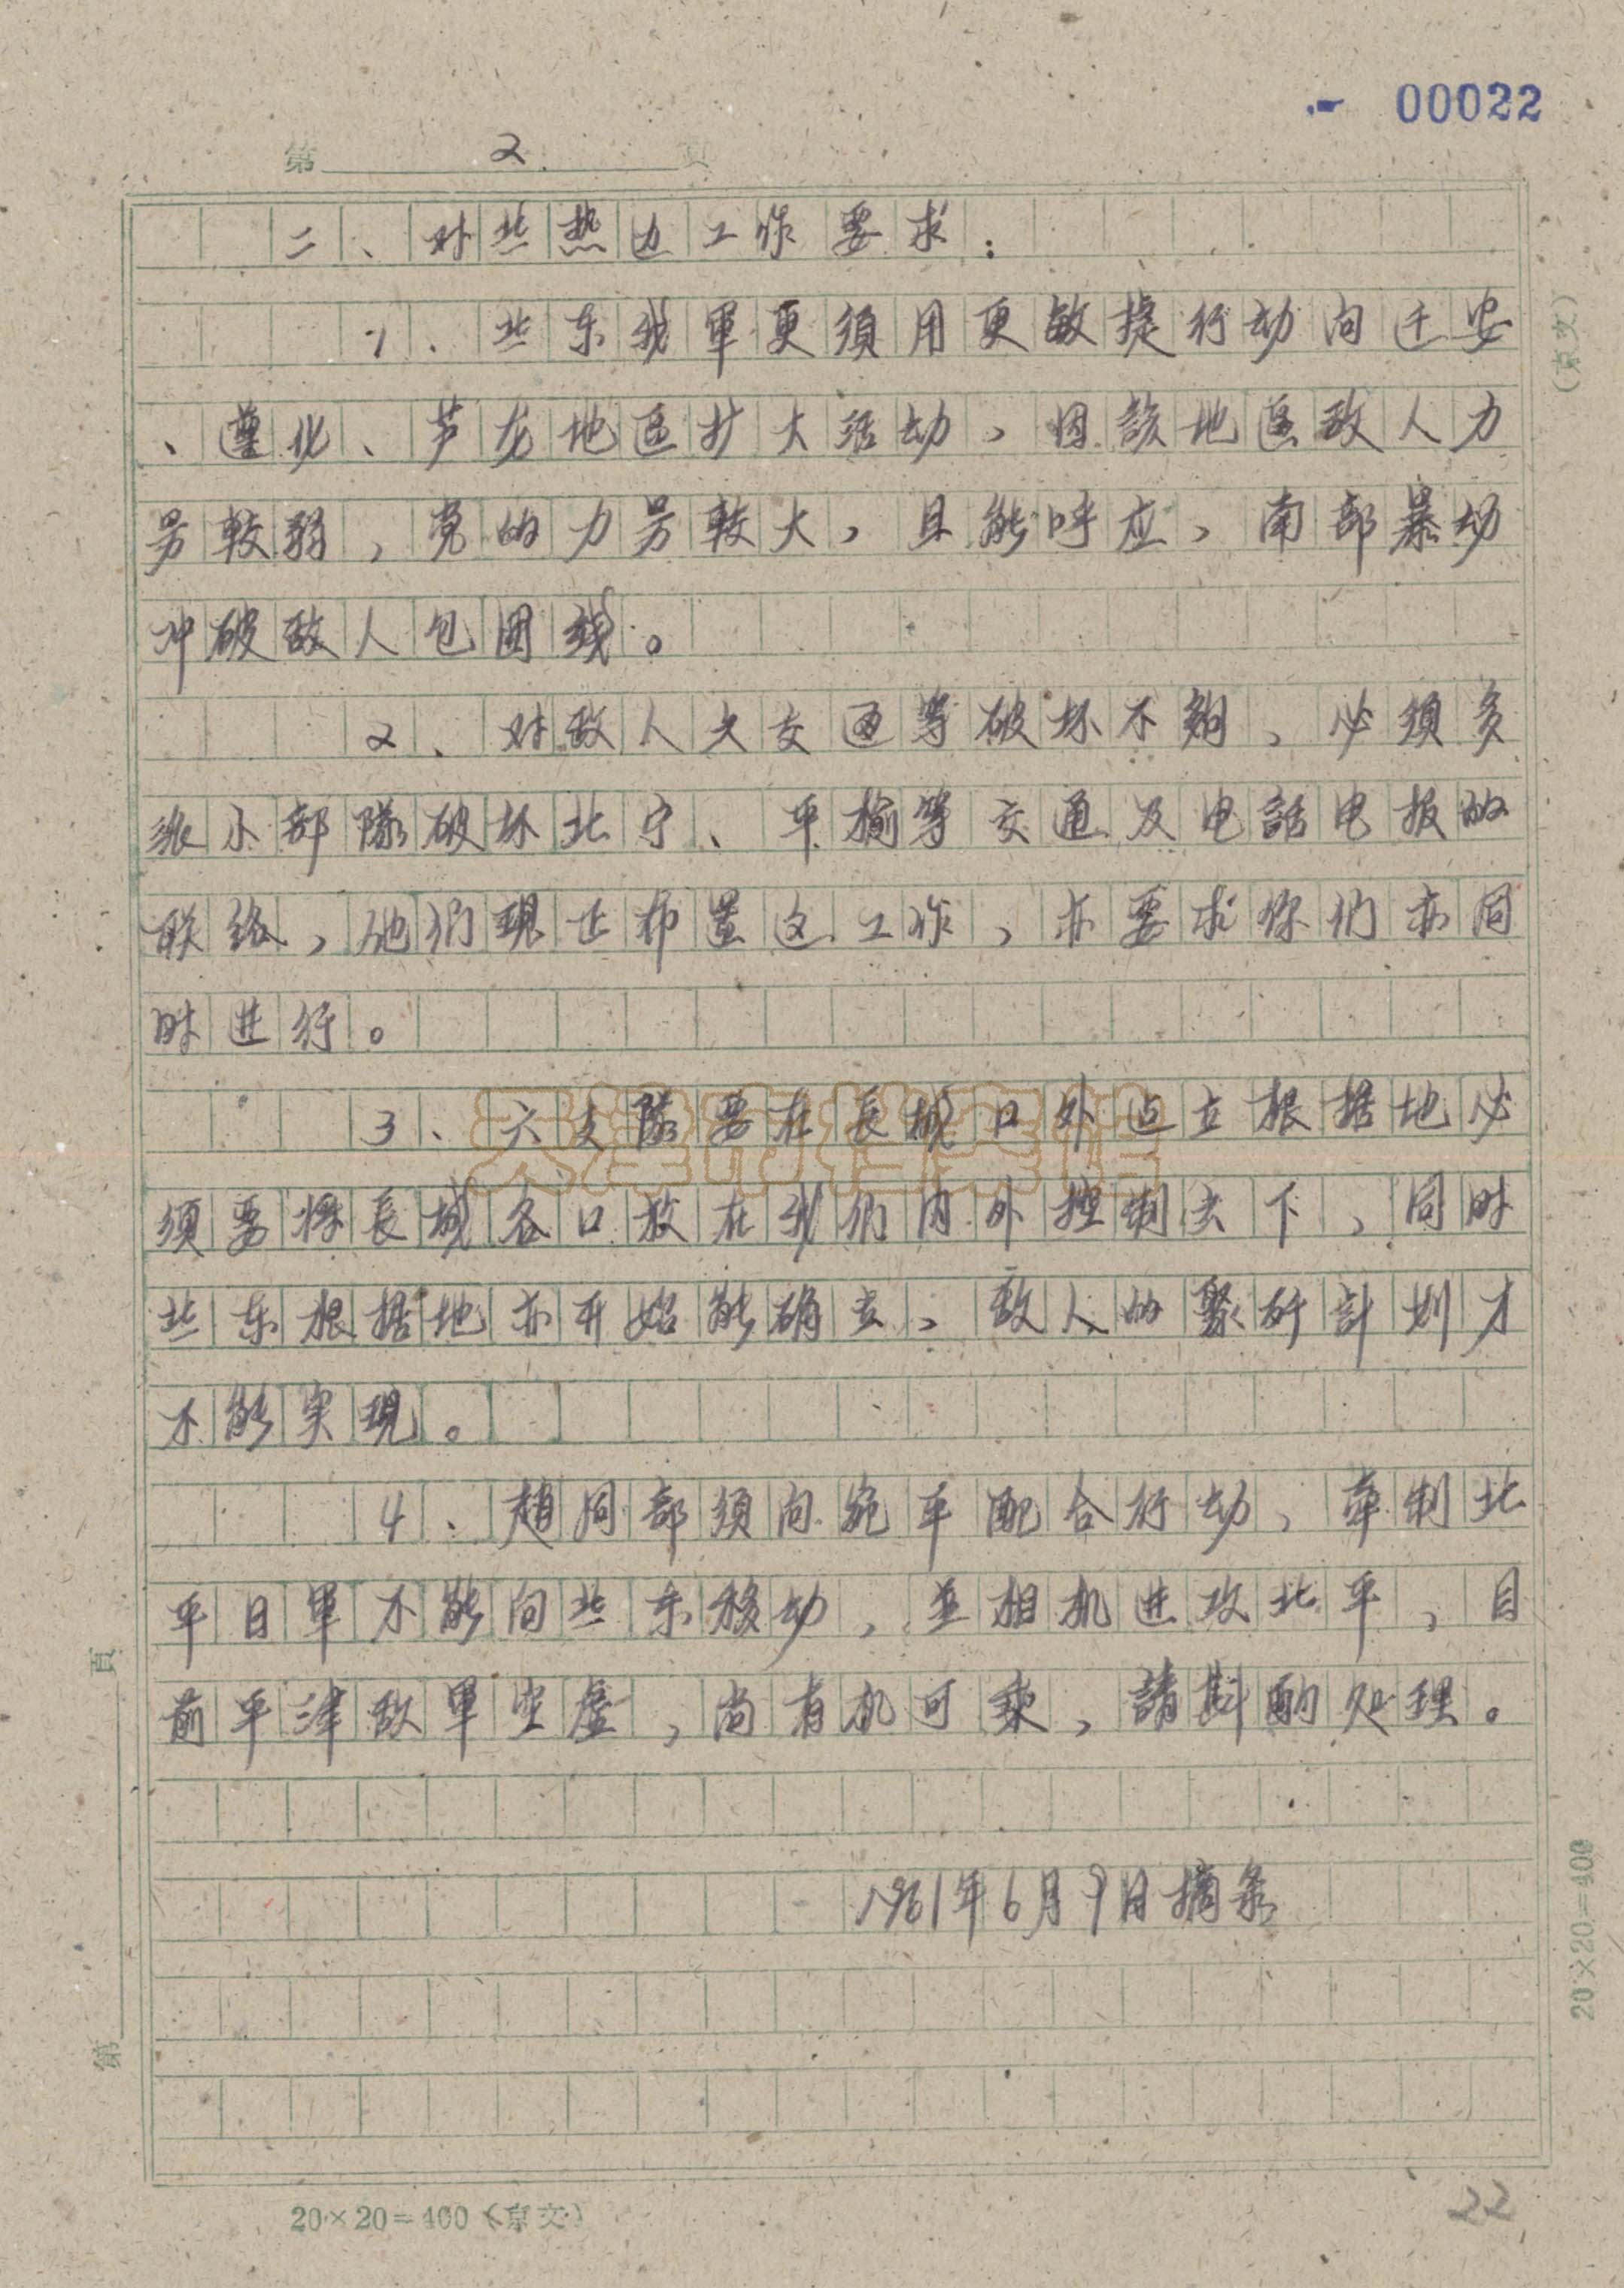 00022
第 2 頁
二、对冀热边工作要求：
1、冀东我軍更須用更敏捷行动向迁安
、遵化、芦龙地区扩大活动，因該地区敌人力
量較弱，党的力量較大，且能呼应，南部暴动
冲破敌人包围线。
2、对敌人火交通等破坏不夠，必須多
派小部隊破坏北宁、平榆等交通及电話电报的
联络，他們現正布置这工作，亦要求你们亦同
时进行。
3、六支隊要在長城口外建立根据地必
須要将長城各口放在我们内外控制之下，同时
冀东根据地亦开始能确立，敌人的聚歼計划才
不能实現。
4、趙同部須向宛平配合行动，牽制北
平日軍不能向冀东移动，並相机进攻北平，目
前平津敌軍空虛，尚有机可乘，請斟酌处理。
1961年6月9日摘录
第 頁
（京文）
20×20=400
20×20=400（京文）
22
天津市档案馆